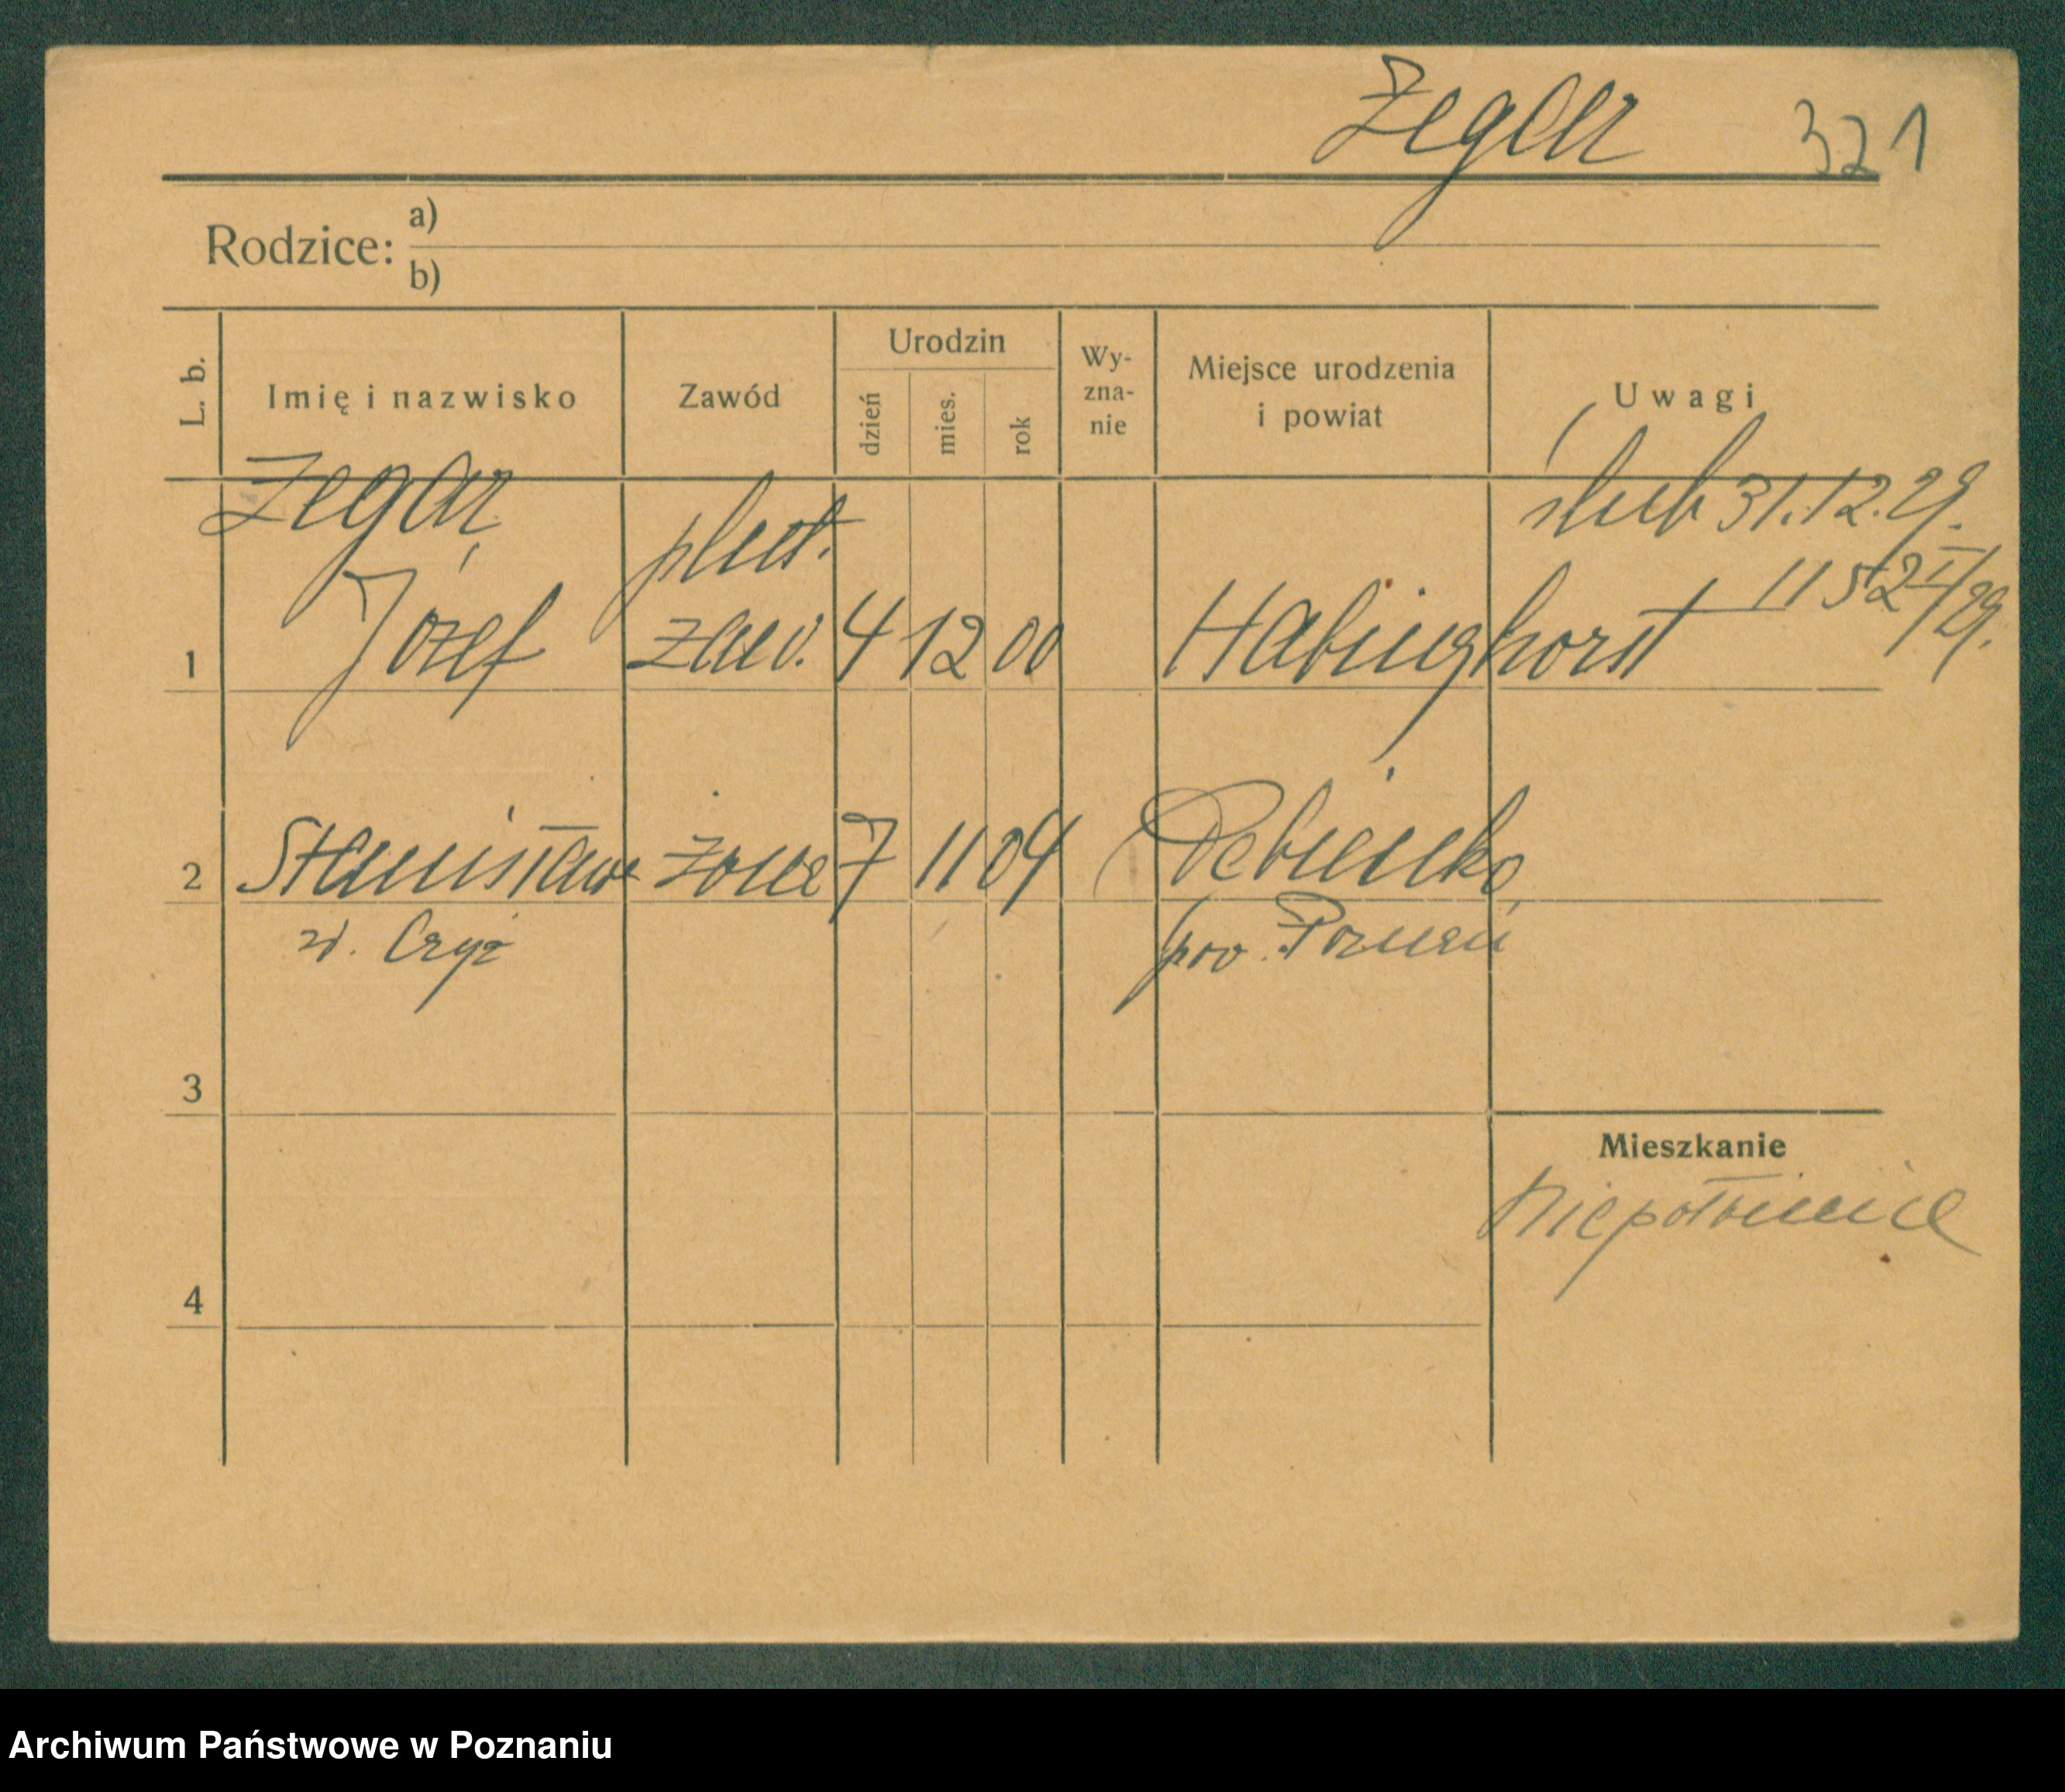 Zegar 321
Rodzice: a)
b)
L. b.
Imię i nazwisko
Zawód
Urodzin
dzień
mies.
rok
Wy-
zna-
nie
Miejsce urodzenia
i powiat
Uwagi
Zegar, plut. ślub 31.12.29.
1 Józef zaw. 4 12 00 Habinghorst 1152 I/29.
2 Stanisława żona 7 11 04 Dębienko,
z d. Czyż pow. Poznań
3
Mieszkanie
4
Archiwum Państwowe w Poznaniu